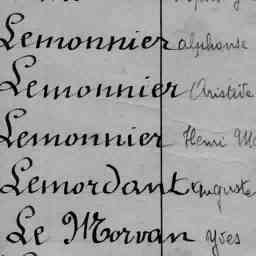 Lemonnier alphonse
Lemonnier Aristide
Lemonnier Henri
Lemordant Auguste
Le Morvan Yves